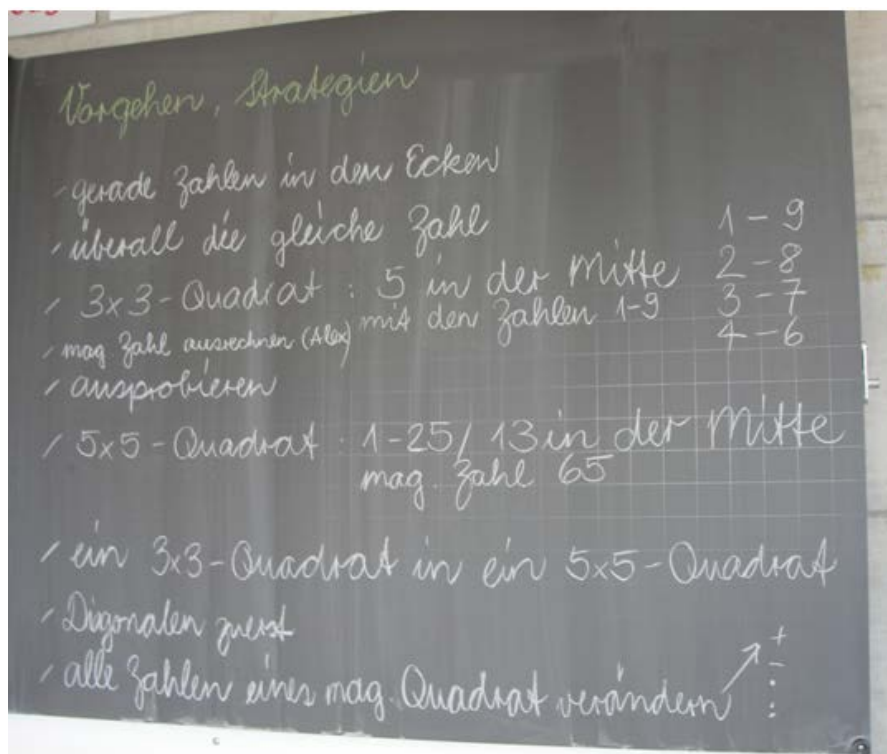 Vorgehen, Strategien
- gerade Zahlen in den Ecken
- überall die gleiche Zahl
- 3x3-Quadrat : 5 in der Mitte
mit den Zahlen 1-9
1 - 9
2 - 8
3 - 7
4 - 6
- mag Zahl ausrechnen (Alex)
- ausprobieren
- 5x5-Quadrat : 1-25/ 13 in der Mitte
mag. Zahl 65
- ein 3x3-Quadrat in ein 5x5-Quadrat
- Digonalen zuerst
- alle Zahlen eines mag. Quadrat verändern ↗ +
-
·
: